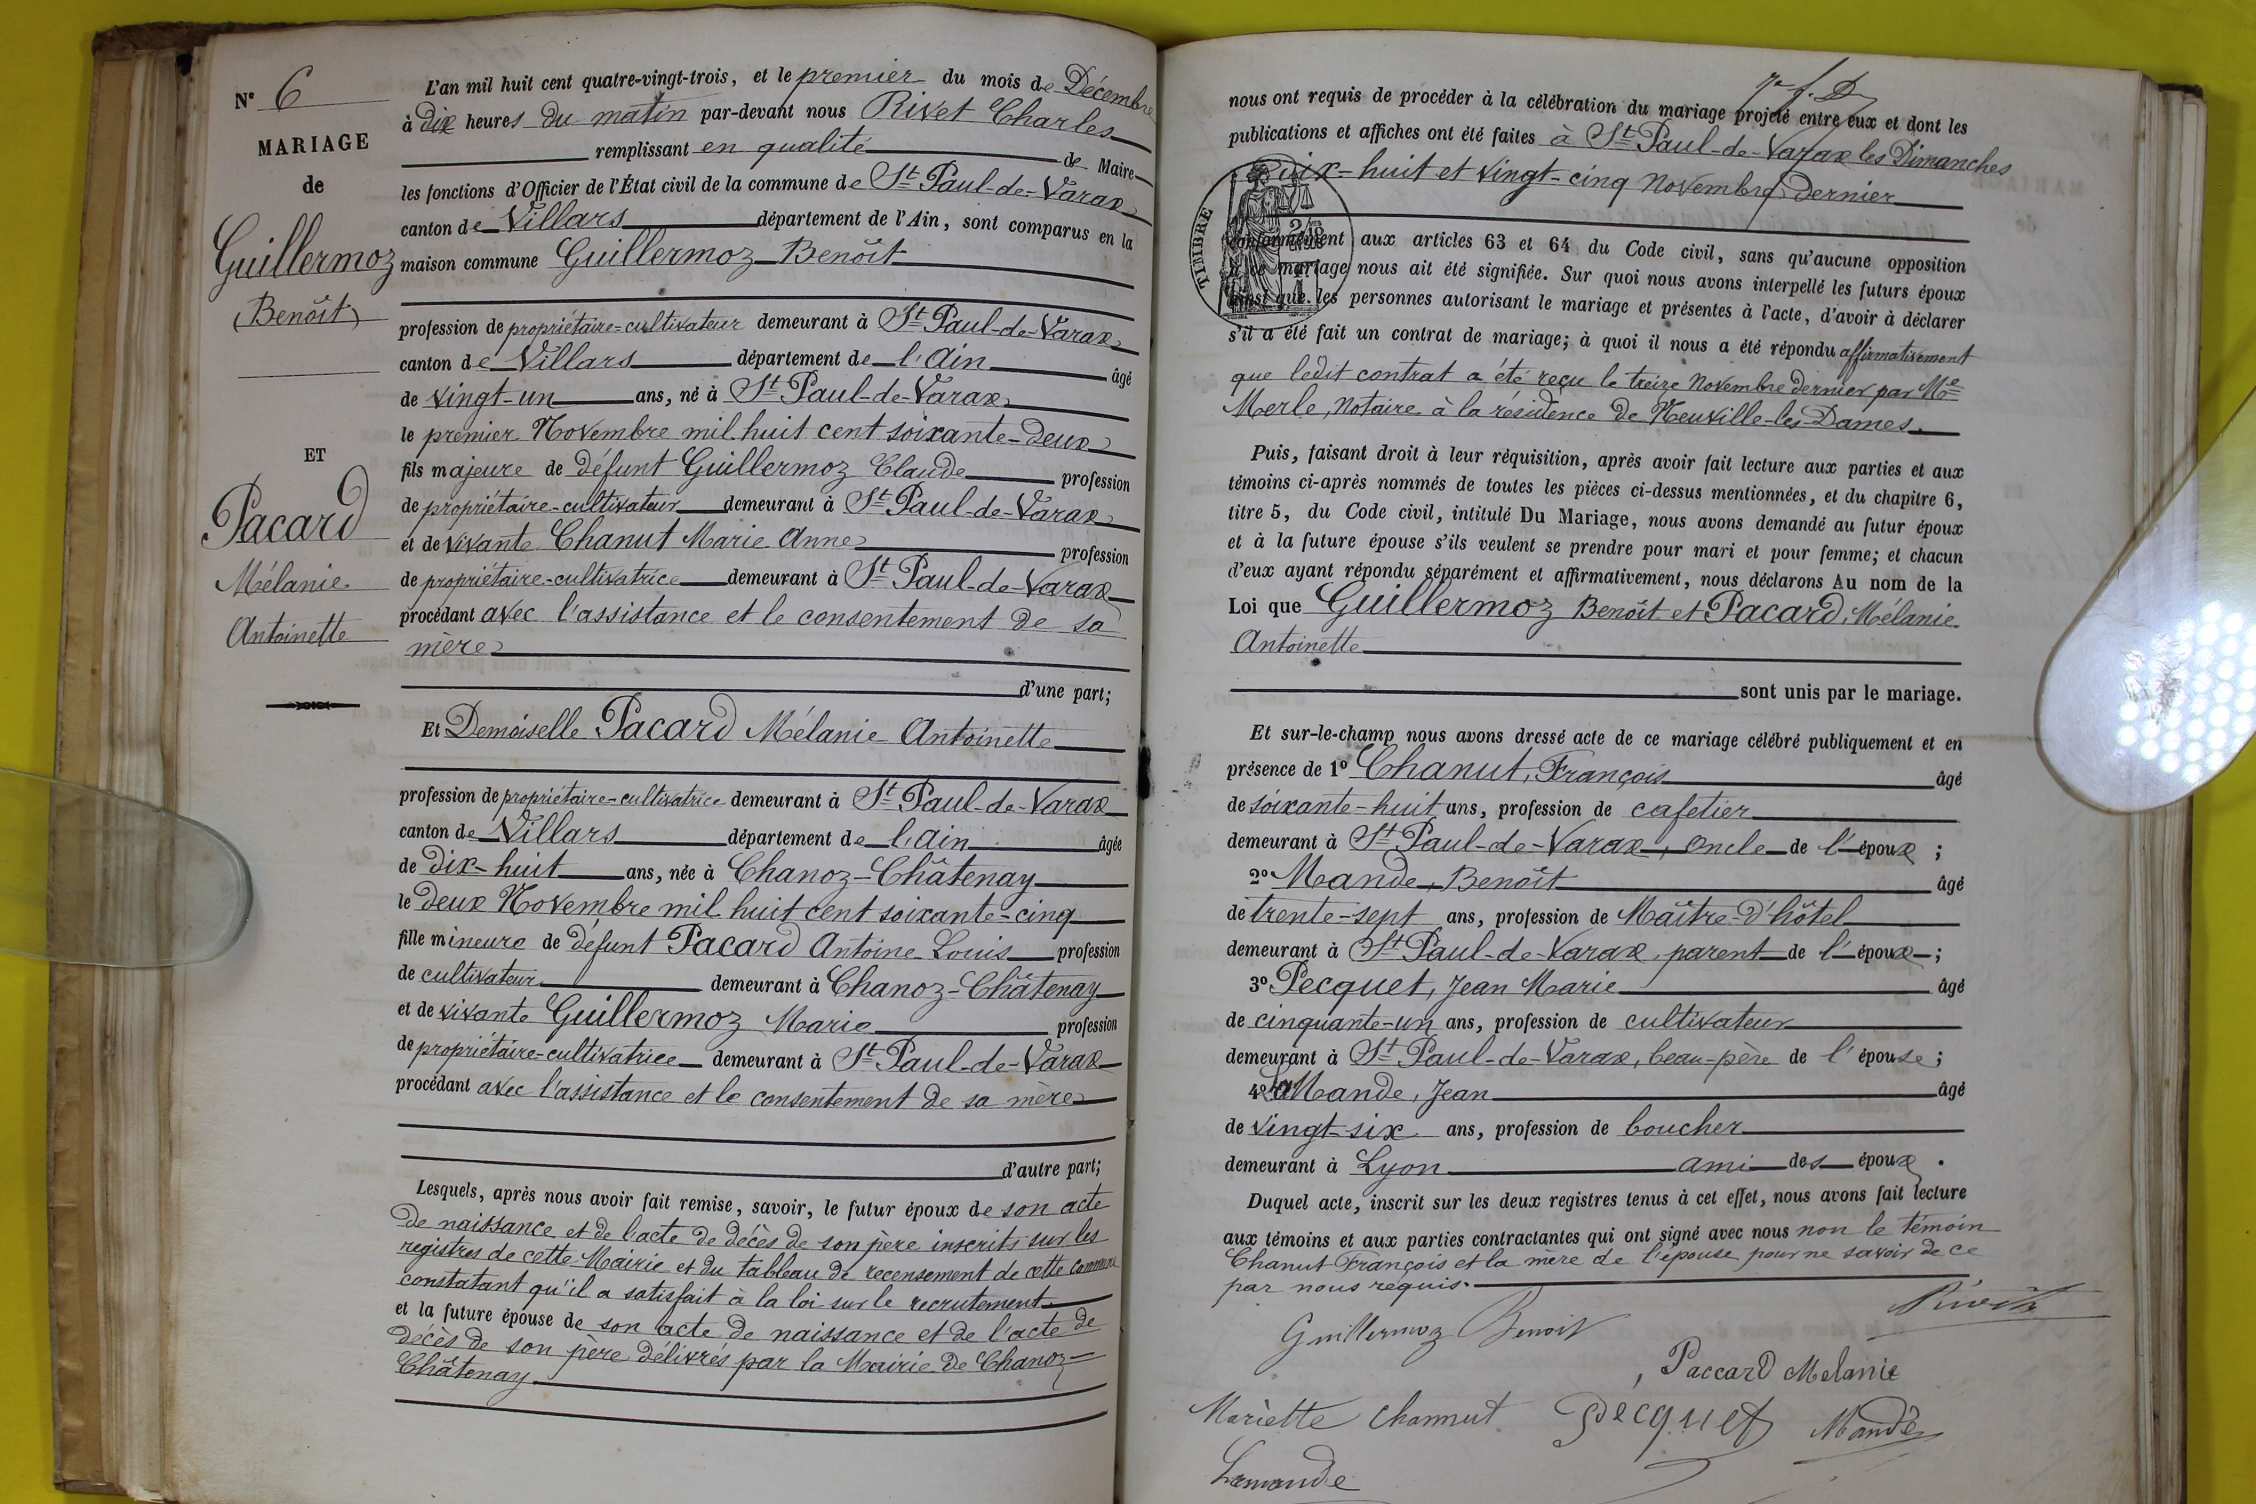 N° 6
MARIAGE
de
Guillermoz
(Benoît)
ET
Pacard
Mélanie
Antoinette
L'an mil huit cent quatre-vingt-trois, et le premier du mois de Décembre
à dix heures du matin par-devant nous Rivet Charles
remplissant en qualité de Maire
les fonctions d'Officier de l'État civil de la commune de St Paul-de-Varax
canton de Villars département de l'Ain, sont comparus en la
maison commune Guillermoz Benoît
profession de propriétaire-cultivateur demeurant à St Paul-de-Varax
canton de Villars département de l'Ain âgé
de vingt-un ans, né à St Paul-de-Varax
le premier Novembre mil huit cent soixante-deux
fils majeure de défunt Guillermoz Claude profession
de propriétaire-cultivateur demeurant à St Paul-de-Varax
et de vivante Chanut Marie Anne profession
de propriétaire-cultivatrice demeurant à St Paul-de-Varax
procédant avec l'assistance et le consentement de sa
mère
d'une part;
Et Demoiselle Pacard Mélanie Antoinette
profession de propriétaire-cultivatrice demeurant à St Paul-de-Varax
canton de Villars département de l'Ain âgée
de dix-huit ans, née à Chanoz-Châtenay
le deux Novembre mil huit cent soixante-cinq
fille mineure de défunt Pacard Antoine Louis profession
de cultivateur demeurant à Chanoz-Châtenay
et de vivante Guillermoz Marie profession
de propriétaire-cultivatrice demeurant à St Paul-de-Varax
procédant avec l'assistance et le consentement de sa mère
d'autre part;
Lesquels, après nous avoir fait remise, savoir, le futur époux de son acte
de naissance et de l'acte de décès de son père inscrits sur les
registres de cette Mairie et du tableau de recensement de cette commune
constatant qu'il a satisfait à la loi sur le recrutement
et la future épouse de son acte de naissance et de l'acte de
décès de son père délivrés par la Mairie de Chanoz-
Châtenay
nous ont requis de procéder à la célébration du mariage projeté entre eux et dont les
publications et affiches ont été faites à St Paul-de-Varax les Dimanches
dix-huit et vingt-cinq Novembre dernier
TIMBRE
conformément aux articles 63 et 64 du Code civil, sans qu'aucune opposition
à ce mariage nous ait été signifiée. Sur quoi nous avons interpellé les futurs époux
ainsi que les personnes autorisant le mariage et présentes à l'acte, d'avoir à déclarer
s'il a été fait un contrat de mariage; à quoi il nous a été répondu affirmativement
que ledit contrat a été reçu le treize Novembre dernier par Me
Merle, Notaire à la résidence de Neuville-les-Dames.
Puis, faisant droit à leur réquisition, après avoir fait lecture aux parties et aux
témoins ci-après nommés de toutes les pièces ci-dessus mentionnées, et du chapitre 6,
titre 5, du Code civil, intitulé Du Mariage, nous avons demandé au futur époux
et à la future épouse s'ils veulent se prendre pour mari et pour femme; et chacun
d'eux ayant répondu séparément et affirmativement, nous déclarons Au nom de la
Loi que Guillermoz Benoît et Pacard, Mélanie
Antoinette
sont unis par le mariage.
Et sur-le-champ nous avons dressé acte de ce mariage célébré publiquement et en
présence de 1° Chanut, François âgé
de soixante-huit ans, profession de cafetier
demeurant à St Paul-de-Varax, oncle de l'époux;
2° Mande, Benoît âgé
de trente-sept ans, profession de Maître-d'hôtel
demeurant à St Paul-de-Varax, parent de l'époux;
3° Pecquet, Jean Marie âgé
de cinquante-un ans, profession de cultivateur
demeurant à St Paul-de-Varax, beau-père de l'épouse;
4° LaMande, Jean âgé
de vingt-six ans, profession de boucher
demeurant à Lyon ami des époux.
Duquel acte, inscrit sur les deux registres tenus à cet effet, nous avons fait lecture
aux témoins et aux parties contractantes qui ont signé avec nous non le témoin
Chanut François et la mère de l'épouse pour ne savoir de ce
par nous requis.
Rivet
Guillermoz Benoit
Paccard Melanie
Mariette Channut Pecquet Mande
Lamande